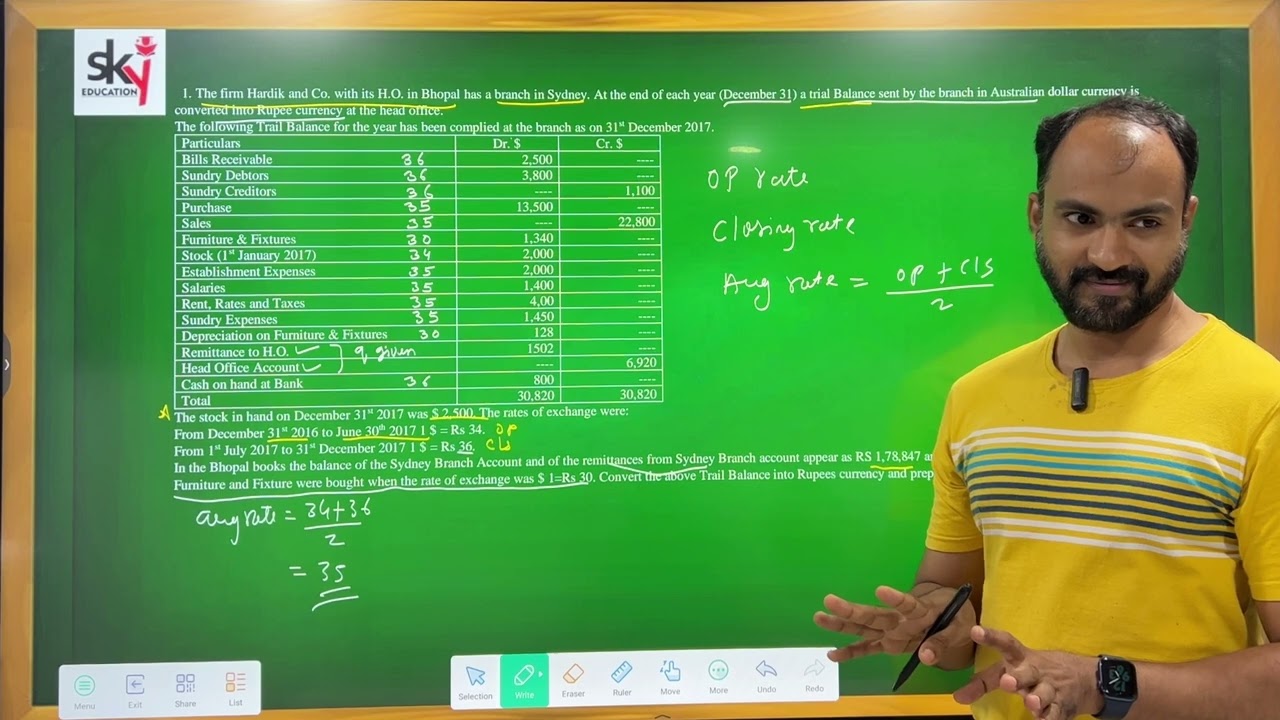 sky
EDUCATION
1. The firm Hardik and Co. with its H.O. in Bhopal has a branch in Sydney. At the end of each year (December 31) a trial Balance sent by the branch in Australian dollar currency is
converted into Rupee currency at the head office.
The following Trail Balance for the year has been complied at the branch as on 31st December 2017.
Particulars Dr. $ Cr. $
Bills Receivable 36 2,500 ----
Sundry Debtors 36 3,800 ----
Sundry Creditors 36 ---- 1,100
Purchase 35 13,500 ----
Sales 35 ---- 22,800
Furniture & Fixtures 30 1,340 ----
Stock (1st January 2017) 34 2,000 ----
Establishment Expenses 35 2,000 ----
Salaries 35 1,400 ----
Rent, Rates and Taxes 35 4,00 ----
Sundry Expenses 35 1,450 ----
Depreciation on Furniture & Fixtures 30 128 ----
Remittance to H.O. 1502 ----
q given
Head Office Account ---- 6,920
Cash on hand at Bank 36 800 ----
Total 30,820 30,820
The stock in hand on December 31st 2017 was $ 2,500. The rates of exchange were:
From December 31st 2016 to June 30th 2017 1 $ = Rs 34. OP
From 1st July 2017 to 31st December 2017 1 $ = Rs 36. Cls
In the Bhopal books the balance of the Sydney Branch Account and of the remittances from Sydney Branch account appear as RS 1,78,847
Furniture and Fixture were bought when the rate of exchange was $ 1=Rs 30. Convert the above Trail Balance into Rupees currency and prep
avg rate = 34+36
2
= 35
OP rate
Closing rate
Avg rate = OP + Cls
2
Menu
Exit
Share
List
Selection
Write
Eraser
Ruler
Move
More
Undo
Redo